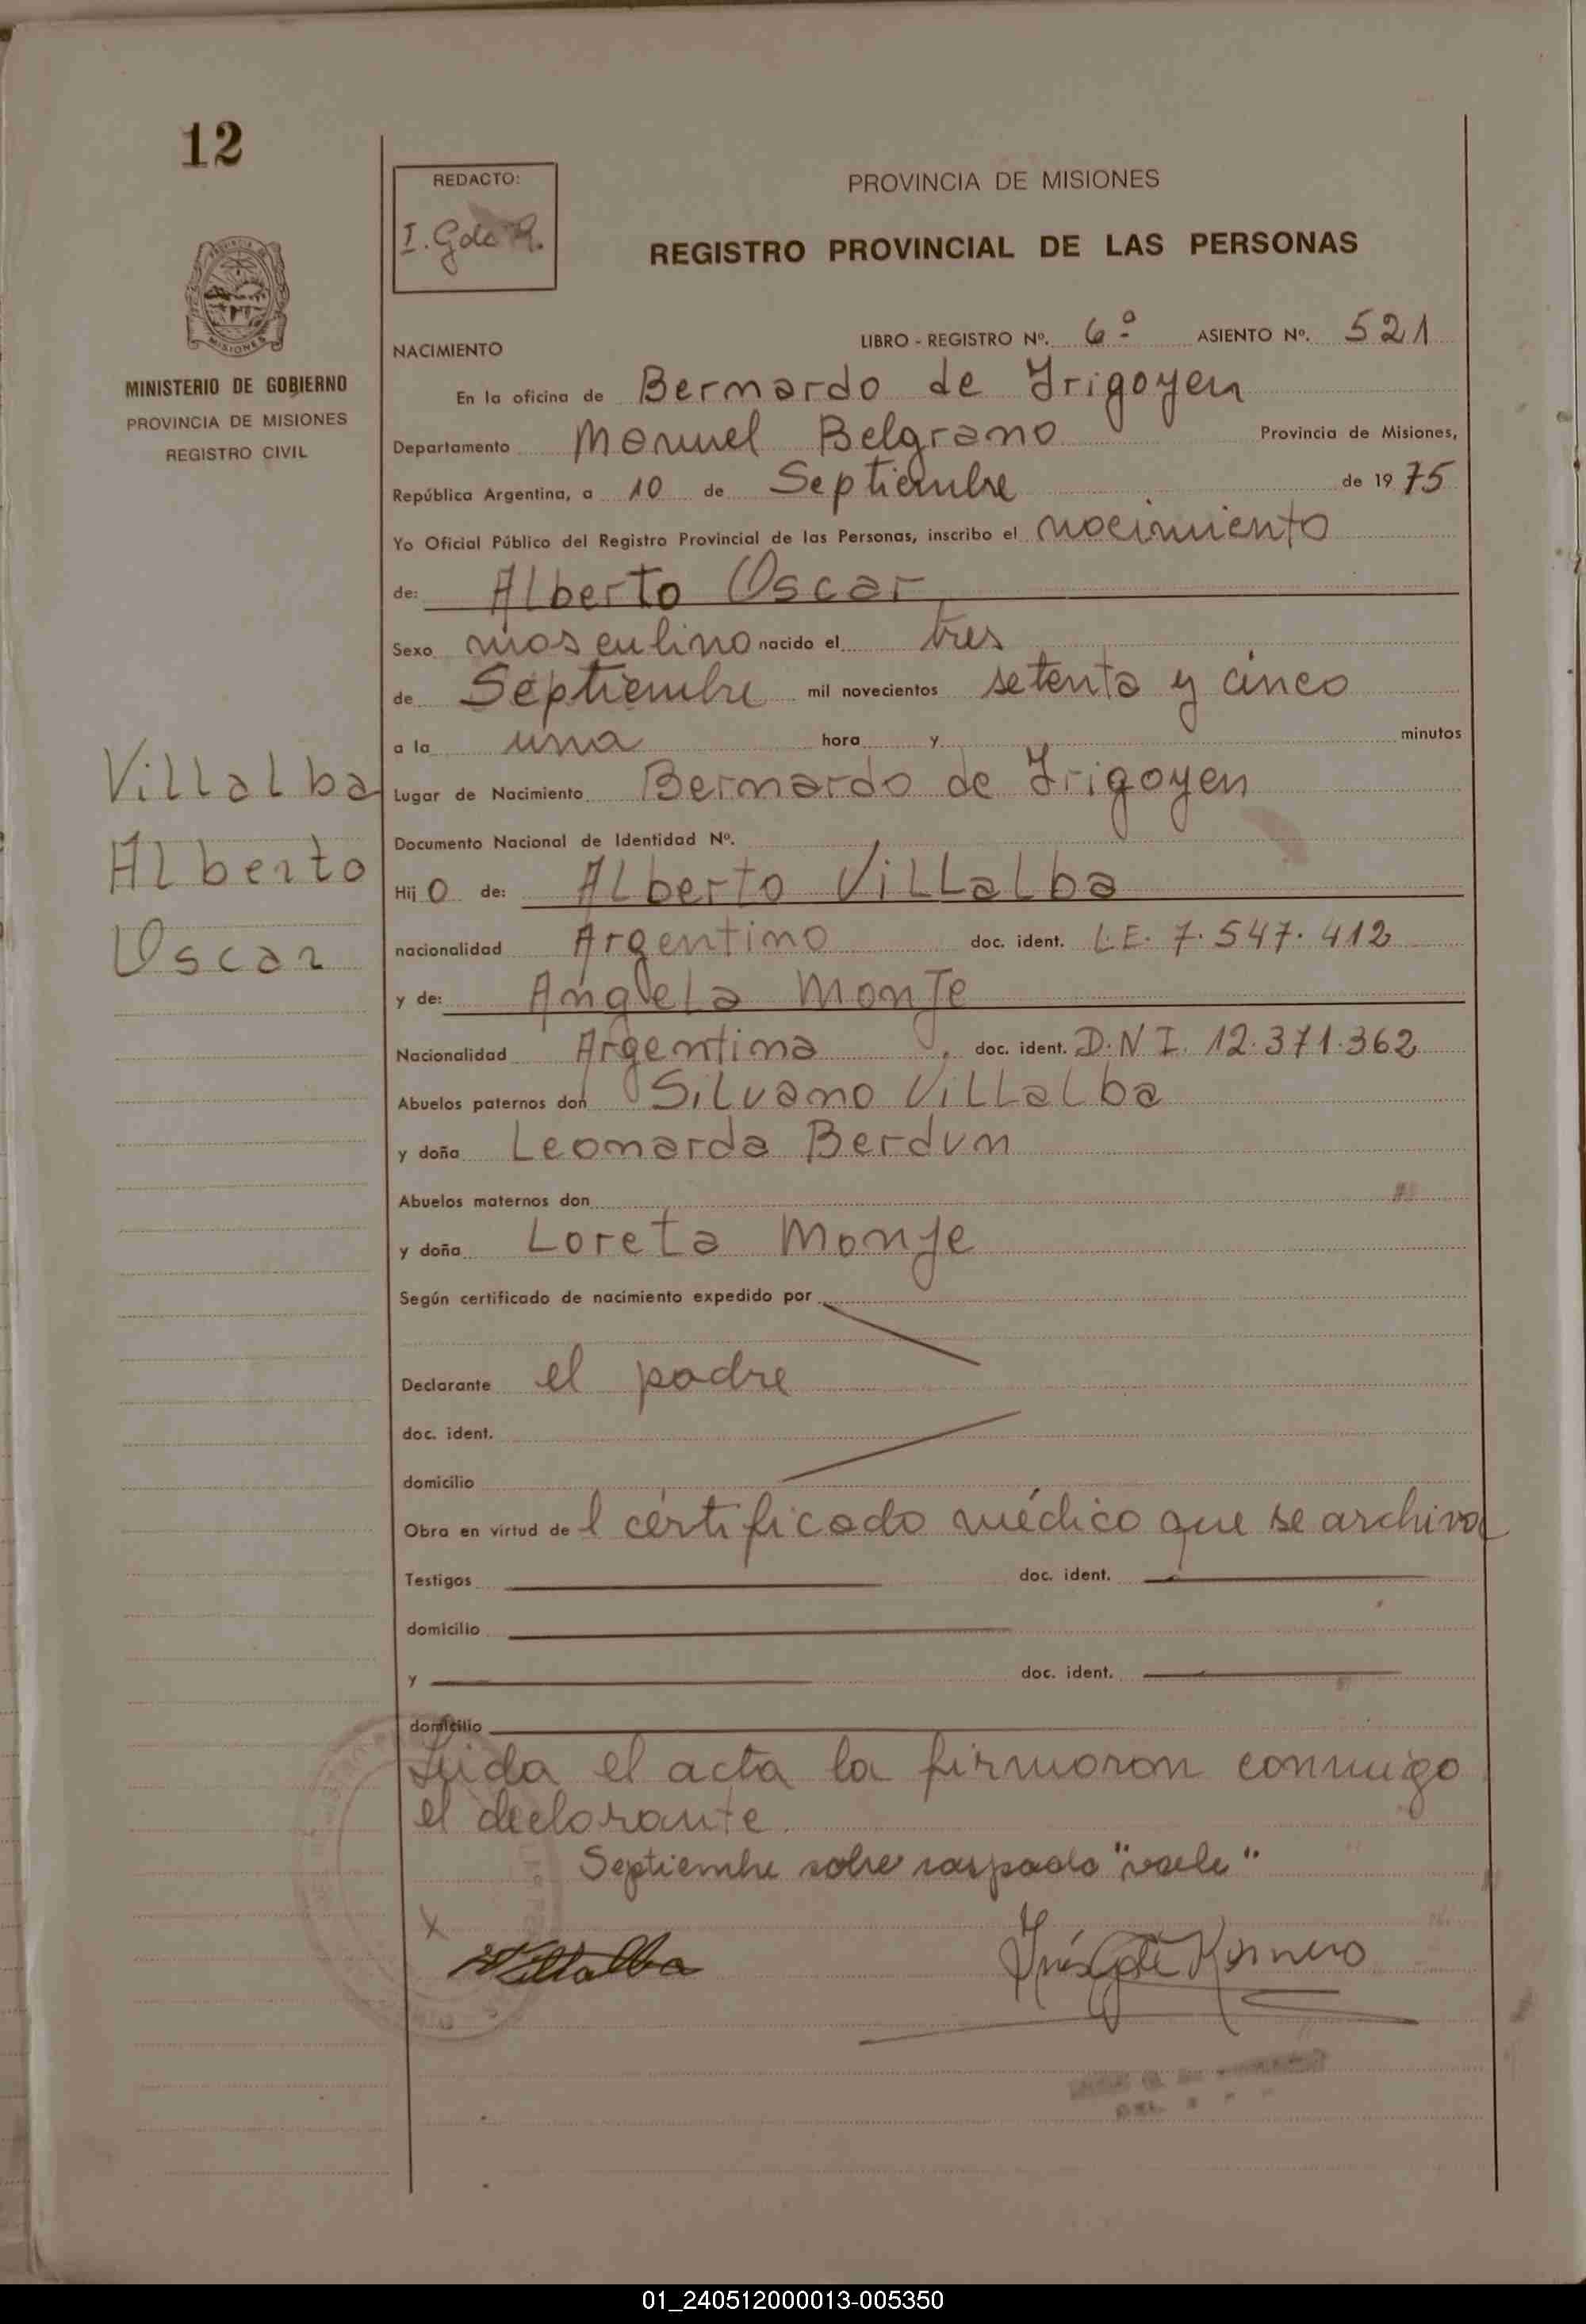 12
REDACTO:
I. Gdo R.
PROVINCIA DE MISIONES
REGISTRO PROVINCIAL DE LAS PERSONAS
MISIONES
MINISTERIO DE GOBIERNO
PROVINCIA DE MISIONES
REGISTRO CIVIL
NACIMIENTO LIBRO - REGISTRO Nº. 6º ASIENTO Nº. 521
En la oficina de Bernardo de Irigoyen
Departamento Manuel Belgrano Provincia de Misiones,
República Argentina, a 10 de Septiembre de 1975
Yo Oficial Público del Registro Provincial de las Personas, inscribo el nacimiento
de: Alberto Oscar
Sexo masculino nacido el tres
de Septiembre mil novecientos setenta y cinco
a la una hora y minutos
Villalba
Alberto
Oscar
Lugar de Nacimiento Bernardo de Irigoyen
Documento Nacional de Identidad Nº.
Hijo de: Alberto Villalba
nacionalidad Argentino doc. ident. L.E. 7.547.412
y de: Angela Monje
Nacionalidad Argentina, doc. ident. D.N.I. 12.371.362
Abuelos paternos don Silvano Villalba
y doña Leonarda Berdun
Abuelos maternos don
y doña Loreta Monje
Según certificado de nacimiento expedido por
Declarante el padre
doc. ident.
domicilio
Obra en virtud de l certificado médico que se archiva
Testigos doc. ident.
domicilio
y doc. ident.
domicilio
Leida el acta la firmaron conmigo
el declarante.
Septiembre sobre raspado "vale"
X
Villalba